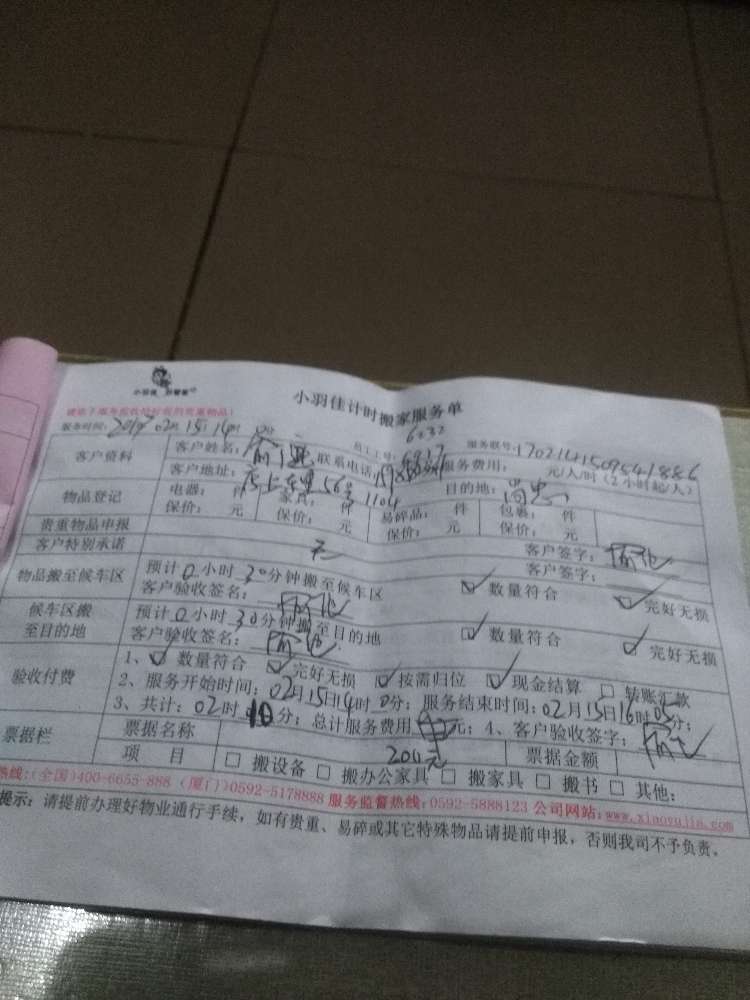 小羽佳
小羽佳计时搬家服务单
服务时间：2017 02 15 14时
员工工号：6232
服务联号：170214150954188６
客户资料
客户姓名：
联系电话：
服务费用： 元/人/时（2小时起/人）
客户地址：店上东里56号1104
目的地：
物品登记
电器： 件 家具： 件 易碎品： 件 包裹： 件
保价： 元 保价： 元 保价： 元 保价： 元
贵重物品申报 无 客户签字：
客户特别承诺 客户签字：
物品搬至候车区
预计0小时30分钟搬至候车区
客户验收签名： ☑ 数量符合 ☑ 完好无损
候车区搬至目的地
预计0小时30分钟搬至目的地
客户验收签名： ☑ 数量符合 ☑ 完好无损
验收付费
1、☑ 数量符合 ☑ 完好无损 ☑ 按需归位 ☑ 现金结算 □ 转账汇款
2、服务开始时间：02月15日14时0分；服务结束时间：02月15日16时05分；
3、共计：02时10分；总计服务费用 元；4、客户验收签字：
200元
票据栏
票据名称 票据金额
项 目 □ 搬设备 □ 搬办公家具 □ 搬家具 □ 搬书 □ 其他：
热线：(全国)400-6655-888 (厦门)0592-5178888 服务监督热线：0592-5888123 公司网站：www.xiaoyujia.com
提示：请提前办理好物业通行手续，如有贵重、易碎或其它特殊物品请提前申报，否则我司不予负责。